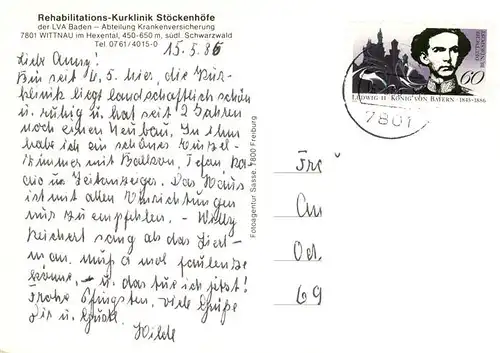 Rehabilitations-Kurklinik Stöckenhöfe
der LVA Baden — Abteilung Krankenversicherung
7801 WITTNAU im Hexental, 450-650 m, südl. Schwarzwald
Tel. 0761/4015-0
15.5.86
Liebe Anny!
Bin seit 12.5. hier, die Kur-
klinik liegt landschaftlich schön
u. ruhig u. hat seit 2 Jahren
noch einen Neubau. In ihm
habe ich ein schönes Einzel-
zimmer mit Balkon, Telefon, Ra-
dio u. Zeitanzeiger. Das Haus
ist mit allen Einrichtungen
nur zu empfehlen. - Willy
Reichert sang als das
man muß a mol faulenze
könne, - u. das tue ich jetzt!
Frohe Pfingsten, viele Grüße
Dir u.
Hilde
Fotoagentur Sasse, 7800 Freiburg
LUDWIG II · KÖNIG VON BAYERN · 1845-1886
DEUTSCHE BUNDESPOST
60
7801
Fra
An
Od
69